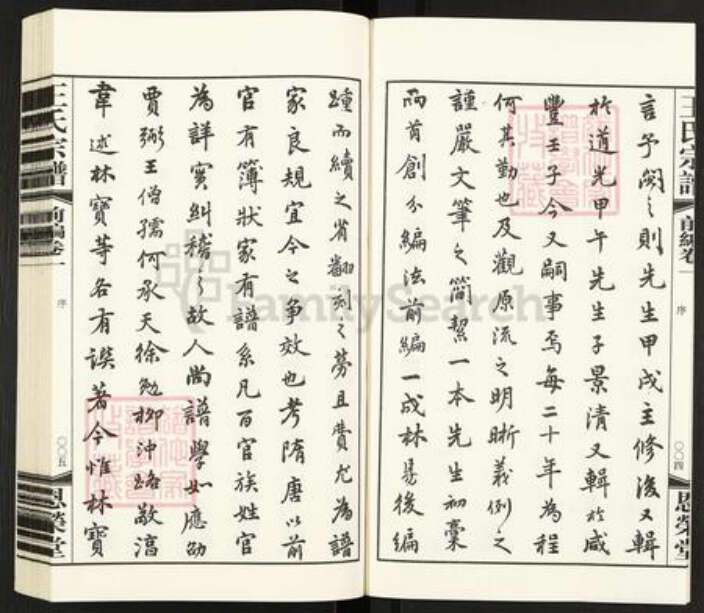 王氏宗譜
前編卷一
序
〇〇四
恩榮堂
言予闕之則先生甲戌主修後又輯
於道光甲午先生子景清又輯於咸
豐壬子今又嗣事焉每二十年為程
何其勤也及觀原流之明晰義例之
謹嚴文筆之簡絜一本先生初稾
而首創分編法前編一成林曷後編
踵而續之省翻刻之勞且費尤為譜
家良規宜今之爭效也考隋唐以前
官有簿狀家有譜系凡百官族姓官
為詳實糾稽之故人尚譜學如應劭
賈弼王僧孺何承天徐勉柳沖路敬淳
韋述林寶等各有譔著今惟林寶
王氏宗譜
前編卷一
序
〇〇五
恩榮堂
FamilySearch